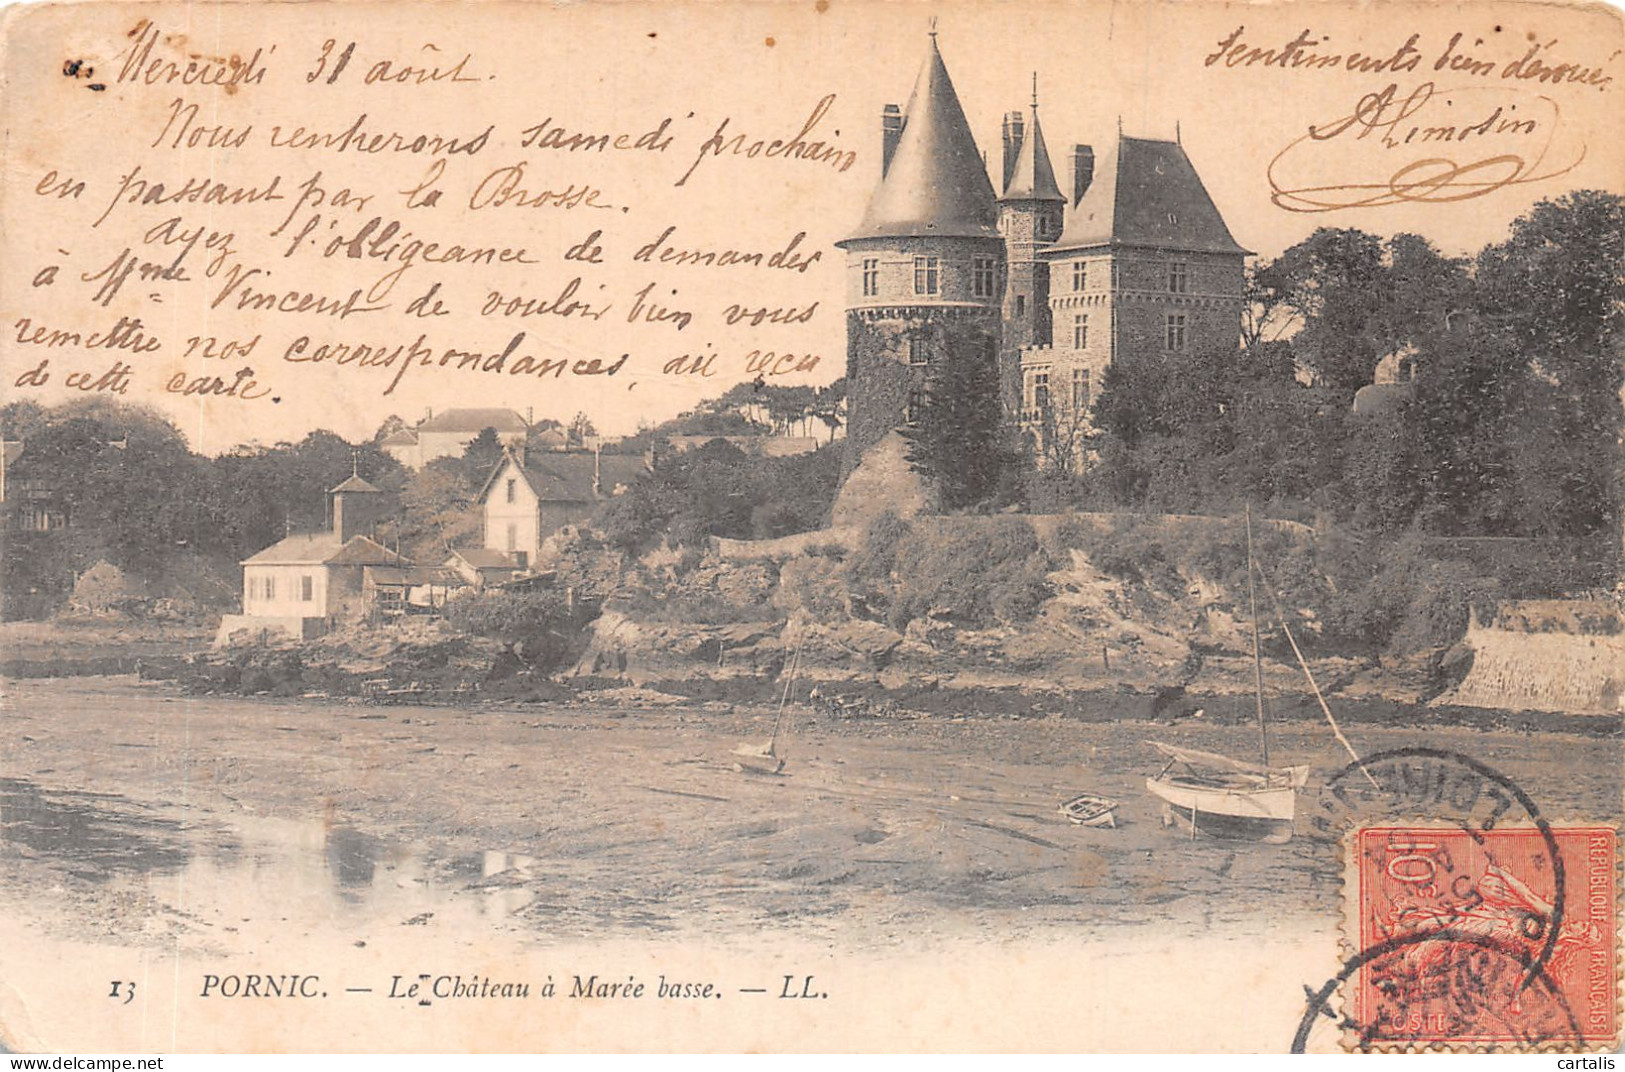 Mercredi 31 août.
Nous rentrerons samedi prochain
en passant par la Brosse.
Ayez l'obligeance de demander
à Mme Vincent de vouloir bien vous
remettre nos correspondances, au reçu
de cette carte.
Sentiments bien dévoués
ALimosin
13 PORNIC. — Le Château à Marée basse. — LL.
LOIRE
10c
REPUBLIQUE FRANÇAISE
POSTES
cartalis